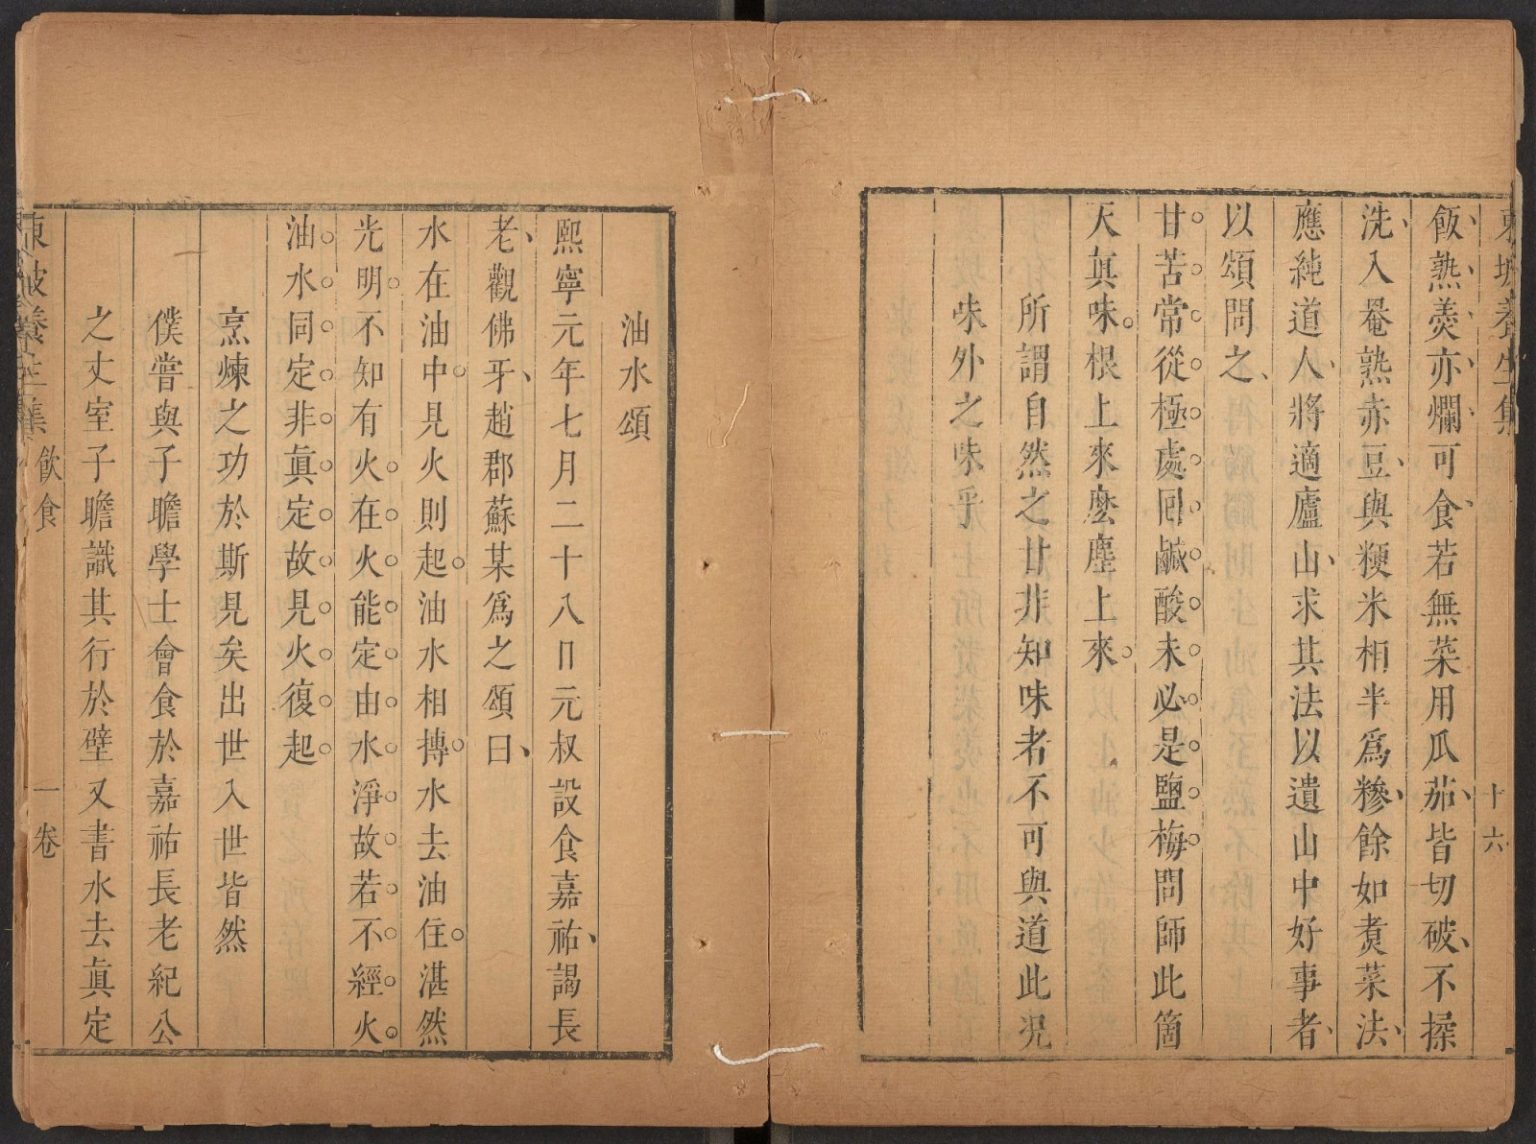 東坡養生集
十六
飯熟羮亦爛可食若無菜用瓜茄皆切破不揉
洗入罨熟赤豆與粳米相半爲糝餘如煑菜法
應純道人將適廬山求其法以遺山中好事者
以頌問之
甘苦常從極處回鹹酸未必是鹽梅問師此箇
天眞味根上來麽塵上來
所謂自然之甘非知味者不可與道此况
味外之味乎
油水頌
熙寧元年七月二十八日元叔設食嘉祐謁長
老觀佛牙趙郡蘇某爲之頌曰
水在油中見火則起油水相摶水去油住湛然
光明不知有火在火能定由水淨故若不經火
油水同定非眞定故見火復起
烹煉之功於斯見矣出世入世皆然
僕嘗與子瞻學士會食於嘉祐長老紀公
之丈室子瞻識其行於壁又書水去眞定
東坡養生集
飲食
一卷